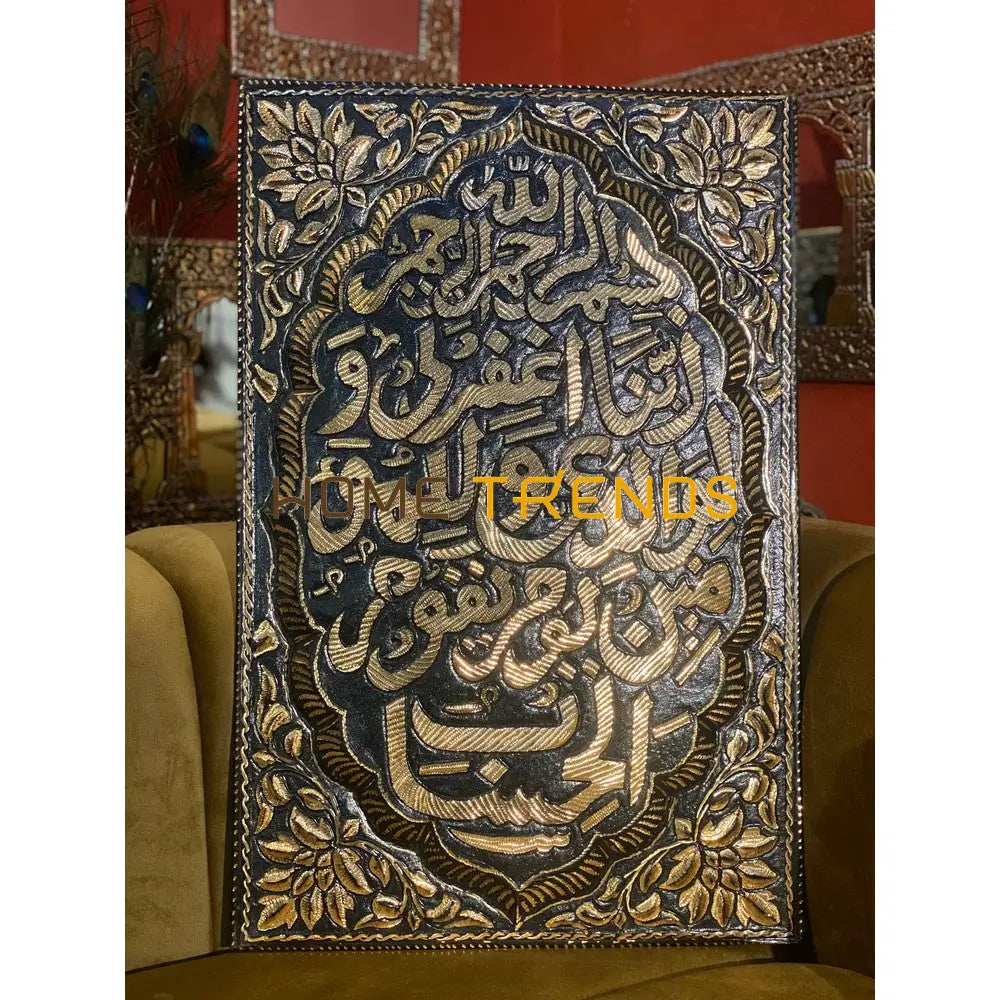 بسم الله الرحمن الرحيم
رَبَّنَا اغْفِرْ لِي وَ
لِوَالِدَيَّ وَلِلْمُؤْمِنِينَ
يَوْمَ يَقُومُ
الْحِسَابُ
HOME TRENDS